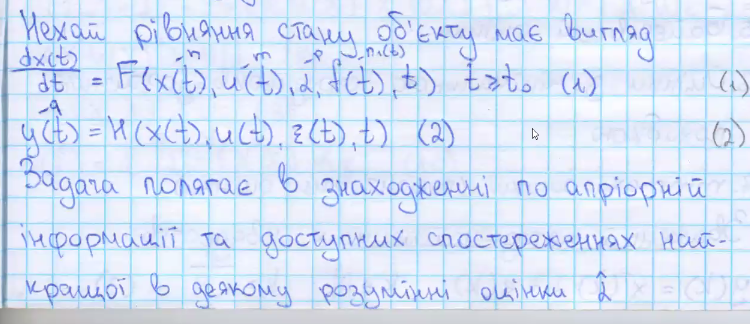 Нехай рівняння стану об'єкту має вигляд
dx(t)/dt = F(x(t), u(t), α, f(t), t) t≥t₀ (1) (1)
y(t) = H(x(t), u(t), ξ(t), t) (2) (2)
Задача полягає в знаходженні по апріорній
інформації та доступних спостереженнях най-
кращої в деякому розумінні оцінки α̂